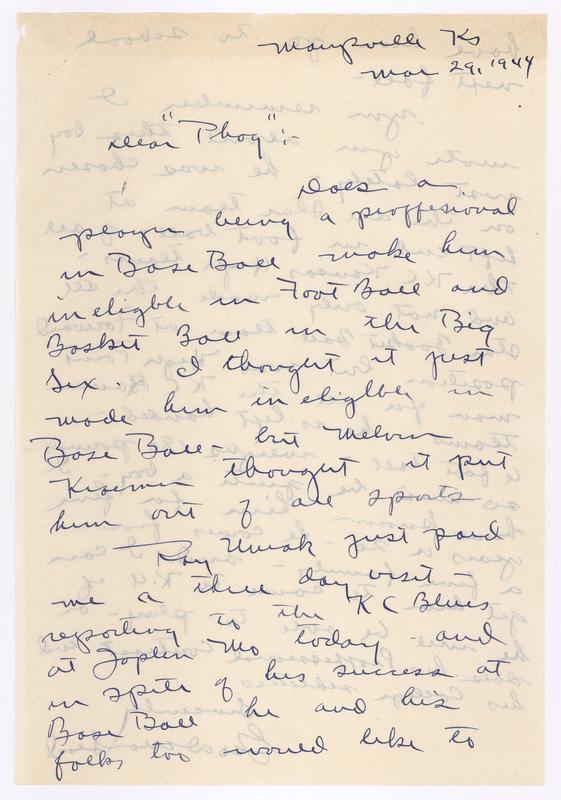 Marysville Ks
Mar 29, 1944
Dear "Phog":-
Does a
player being a proffesional
in Base Ball make him
ineligble in Foot Ball and
Basket Ball in the Big
Six. I thought it just
made him in eliglbe in
Base Ball - but Melvin
thought it put
him out of all sports
Ray just paid
me a three day visit -
reporting to the KC Blues
at Joplin Mo today - and
in spite of his success at
Base Ball he and his
folks too would like to